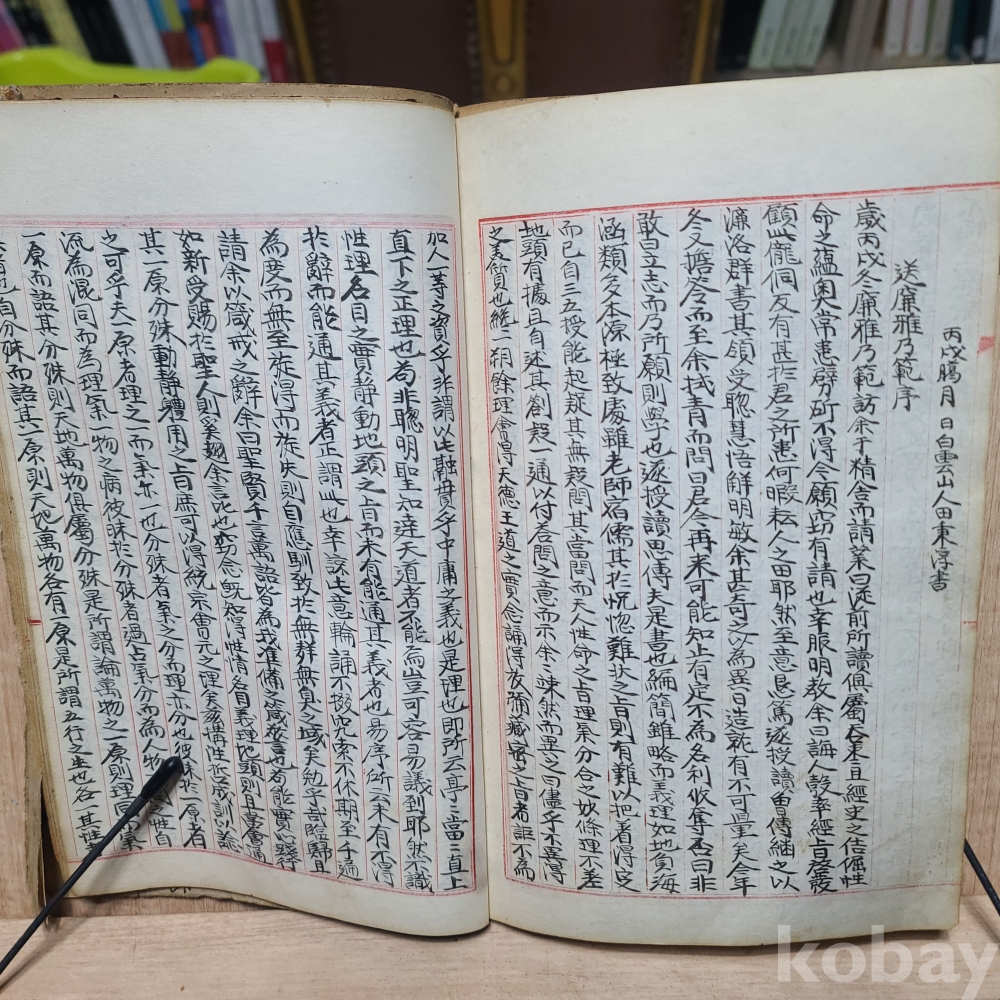 丙戌臈月 日白雲山人田秉淳書
送廉雅乃範序
歲丙戌冬廉雅乃範訪余于精舍而請業曰從前所讀俱屬 且經史之佶倔性
命之蘊奧常患辟所不得令願竊有請也幸賜明教余曰誨人彀率經旨啓發
顧此儱侗反有甚於君之所患何暇耘人之田耶然至意懇篤遂授讀曾傳繼之以
濂洛群書其領受聰慧悟解明敏余甚奇之以為異日造就有不可量矣今年
冬又擔簦而至余拭青而問曰君今再來可能知止有定不為名利攸奪否曰非
敢曰立志而乃所願則學也遂授讀思傳夫是書也編簡雖略而義理如地負海
涵類多本源極致處雖老師宿儒其於怳惚難狀之旨則有難以把者得定
而已自三五授能起疑其無疑問其當問而天人性命之旨理氣分合之妙條理不差
地頭有據且自述其劄疑一通以付答問之意而示余之竦然而異之曰儘乎不異得
之美質也繼一朔餘理會得天德王道之實念誦得友彌藏密之旨者誰不為
加人一等之資乎非謂以此融貫乎中庸之義也是理也即所云亭亭當當直上
直下之正理也苟非聰明聖知達天道者不能而豈可容易議到耶然不識
性理名目之實靜動地頭之旨而未有能通其義者也易序所云未有不得
於辭而能通其義者正謂此也幸諒此意輪誦不假究索不休期至千遍
為度而無至旋得而旋失則自應馴致於無群無負之域矣勉乎哉臨歸且
請余以箴戒之辭余曰聖賢千言萬語皆為我準備之箴 言苟能實心踐行
如新受賜於聖人則奚翅余言哉也
其一原分殊動靜體用之旨庶可以得統宗會元之理矣
之可乎夫一原者理之一而氣亦一也分殊者氣之分而理亦分也
流為混同而為理氣一物之病彼昧於分殊者過占氣分而為人物 性自
一原而語其分殊則天地萬物俱屬分殊是所謂論萬物之一原則理同
自分殊而語其一原則天地萬物各有一原是所謂五行之生也各一其性
kobay